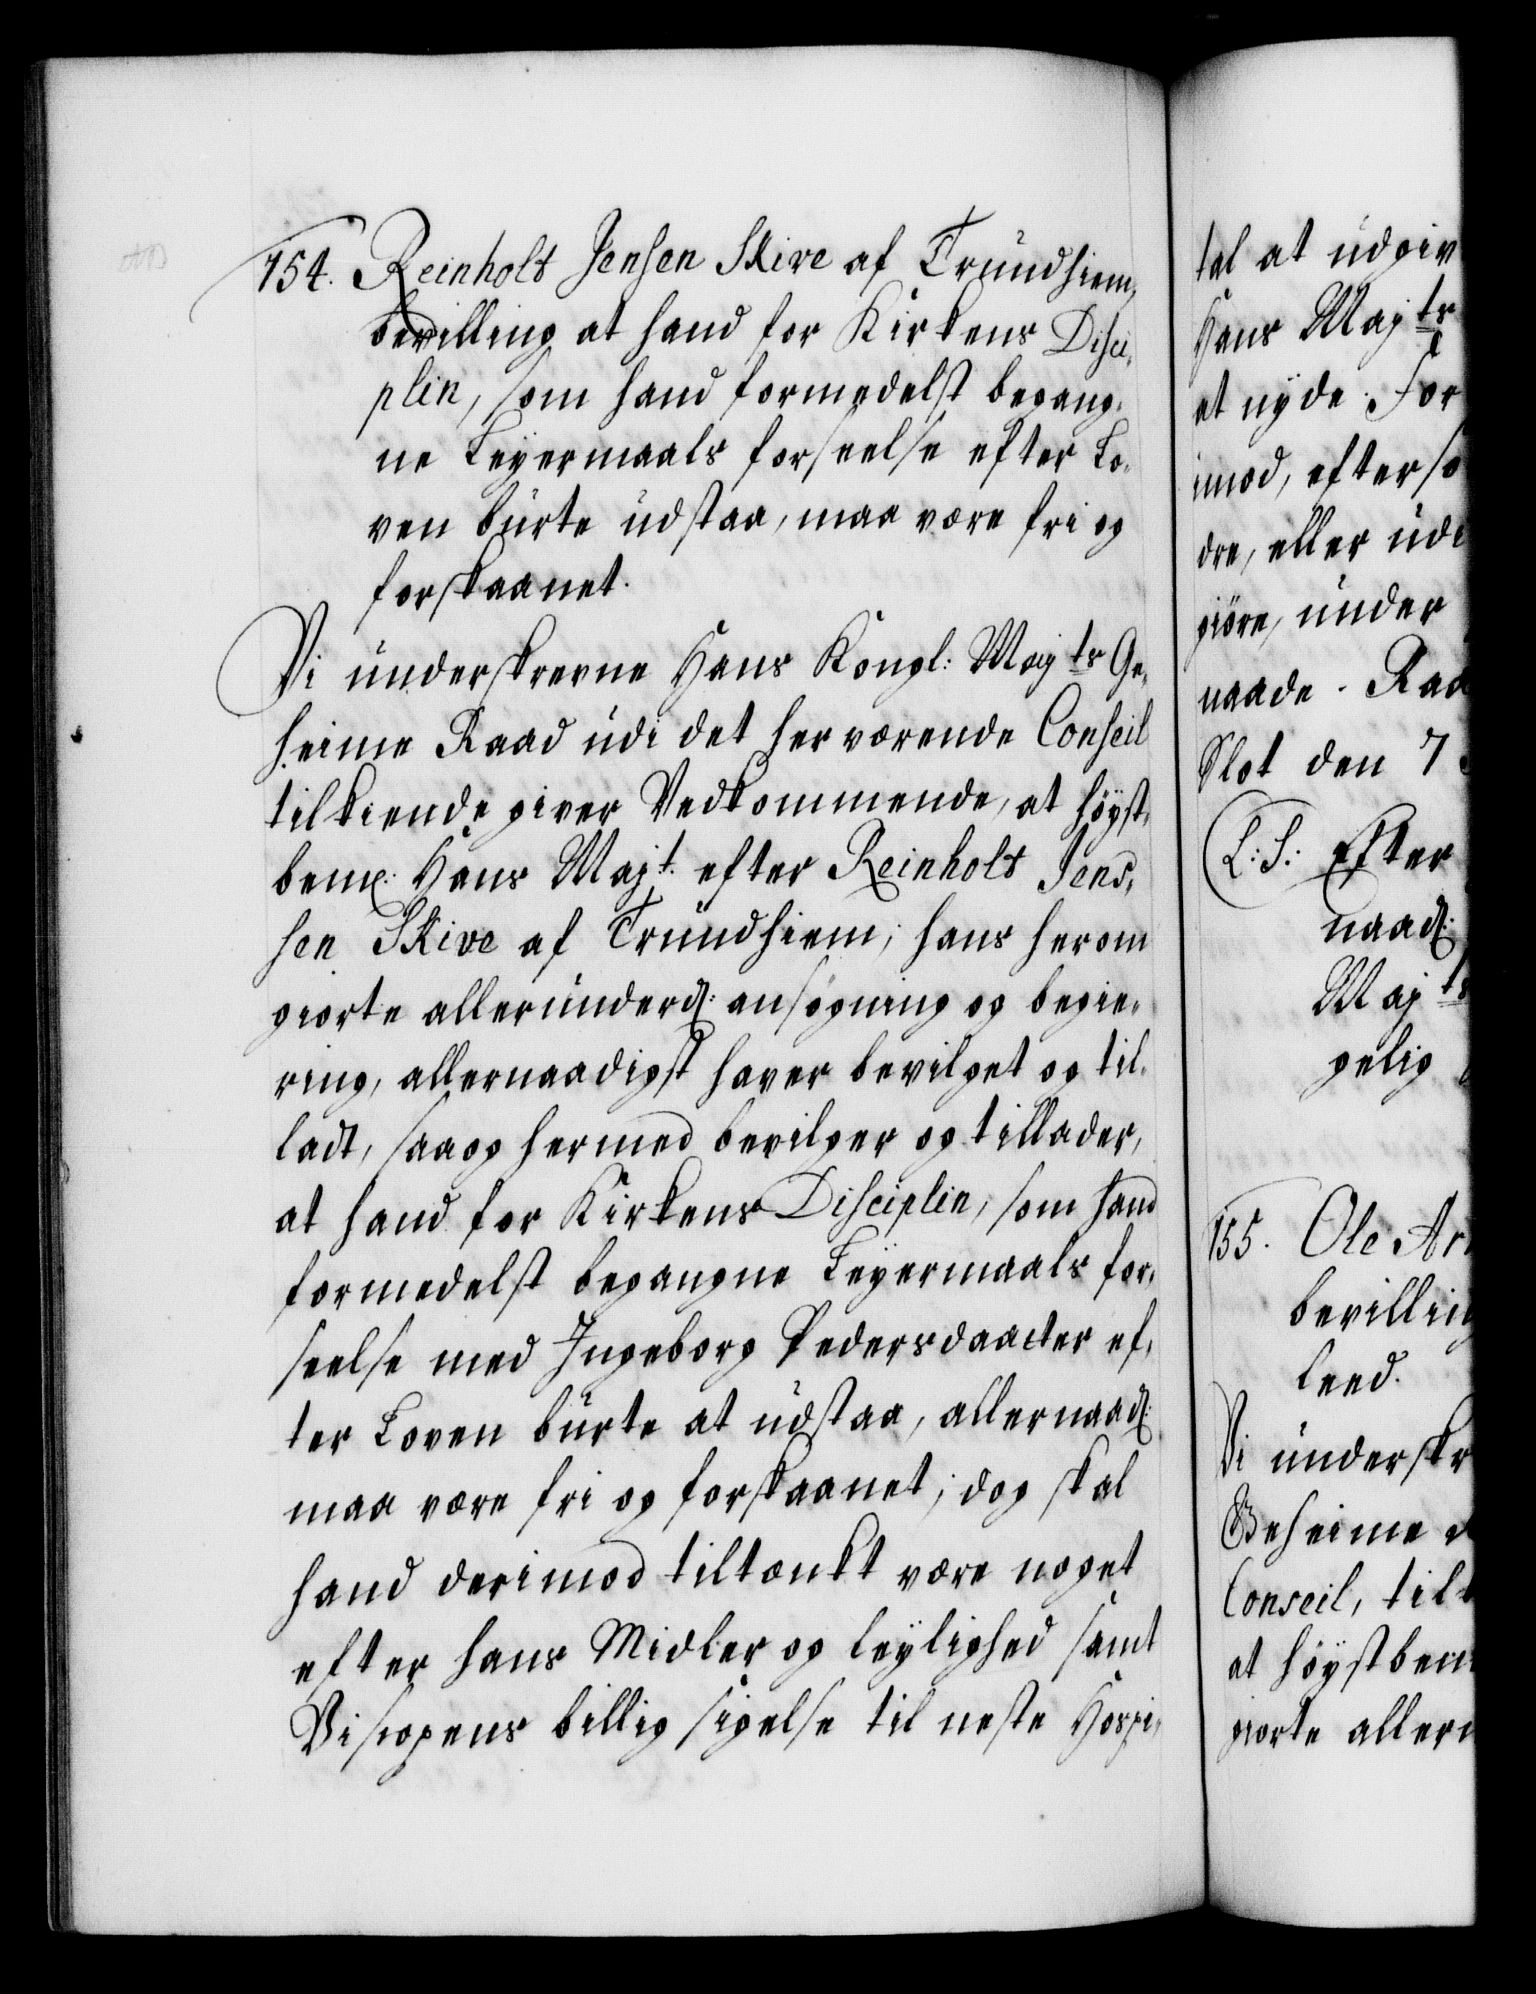 154. Reinholt Jensen Skive af Trundhiem,
bevilling at hand for Kirkens Disci-
plin, som hand formedelst begang-
ne Leyermaals forseelse efter Lo-
ven burte udstaa, maa være fri og
forskaanet.
Vi underskrevne Hans Kongl: Maj:ts Ge-
heime Raad udi det her værende Conseil
tilkiende giver Vedkommende, at höyst-
bem: Hans Majt. efter Reinholt Jend-
sen Skive af Trundhiem, hans herom
giorte allerunderd: ansögning og begie-
ring, allernaadigst haver bevilget og til-
ladt, saa og hermed bevilger og tillader,
at hand for Kirkens Disciplin, som hand
formedelst begangne Leyermaals for-
seelse med Ingeborg Pedersdaatter ef-
ter Loven burte at udstaa, allernaad:
maa være fri og forskaanet; dog skal
hand derimod tiltænkt være noget
efter hans Midler og leylighed samt
Biscopens billig sigelse til neste Hospi-
tal at udgiv
Hans Maj:ts
at nyde. For
imod, efter so
dre, eller udi
giöre, under
naade. Raa
Slot den 7
L:S: Efter
naad:
Maj:ts
gelig
155. Ole Ar
bevilling
leed.
Vi underskr
Geheime
Conseil, til
at höystbem
giorte allern